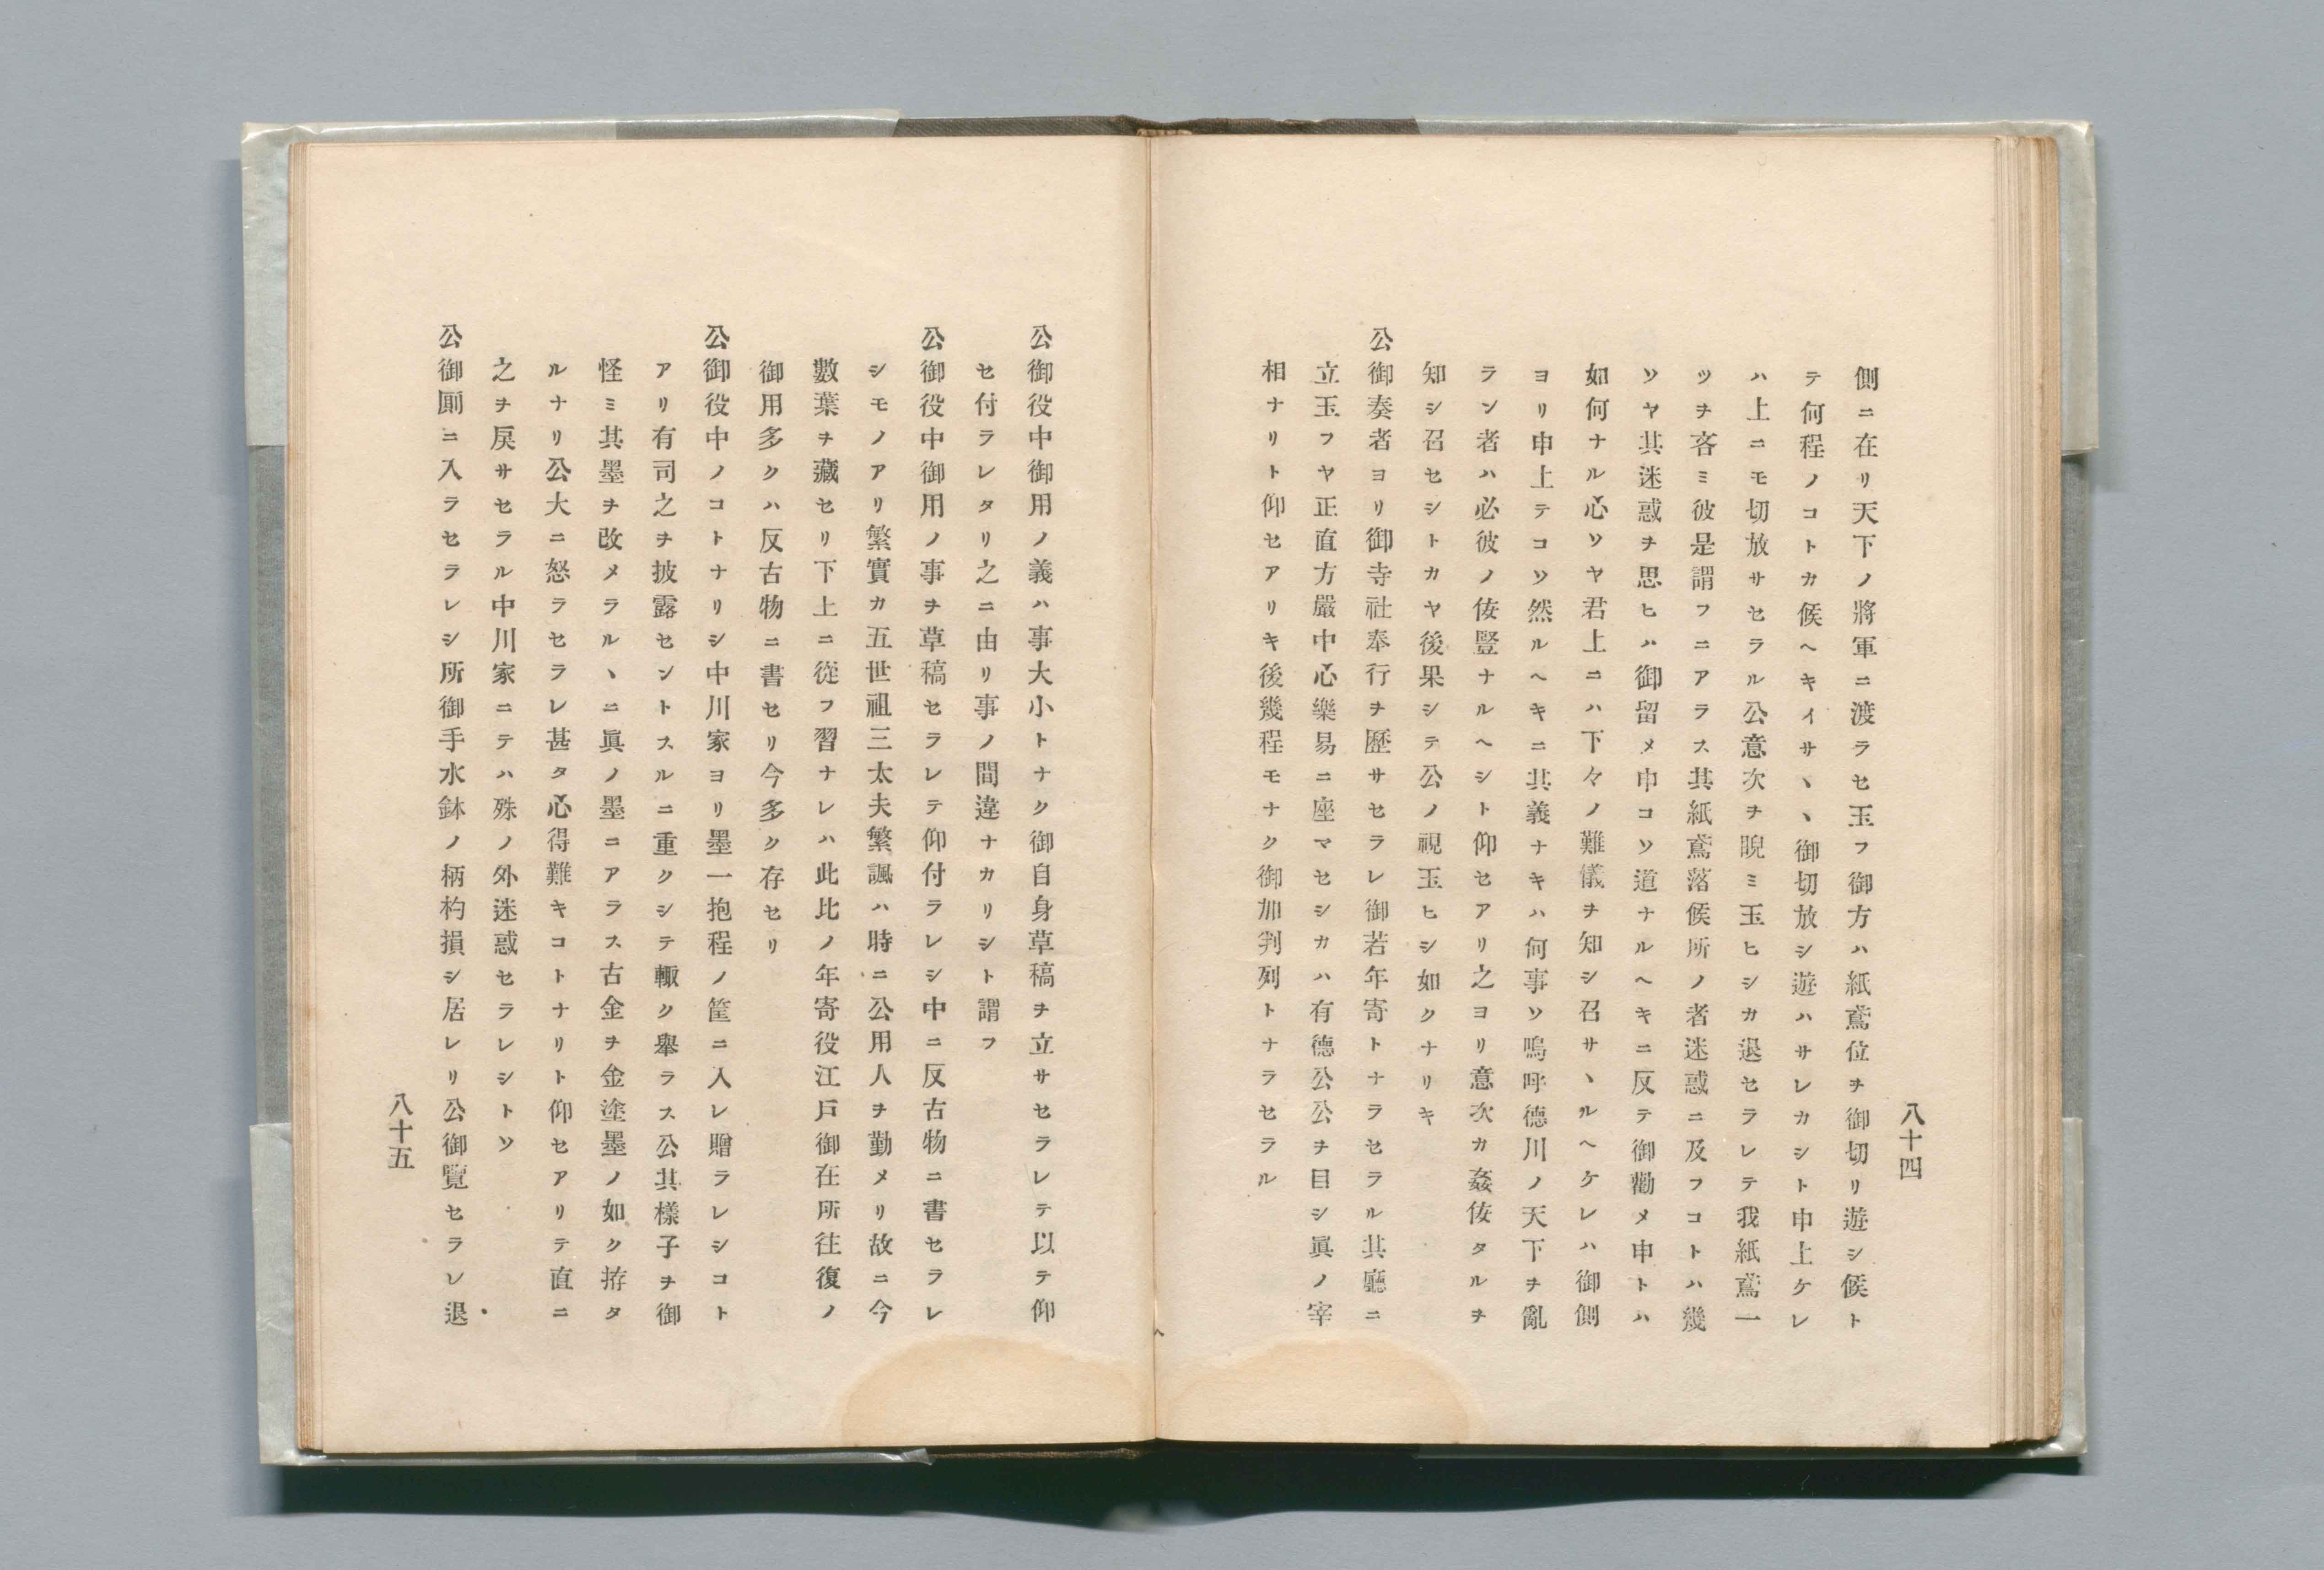 八十四
側ニ在リ天下ノ將軍ニ渡ラセ玉フ御方ハ紙鳶位ヲ御切リ遊シ候ト
テ何程ノコトカ候ヘキイサヽヽ御切放シ遊ハサレカシト申上ケレ
ハ上ニモ切放サセラル公意次ヲ睨ミ玉ヒシカ退セラレテ我紙鳶一
ツヲ吝ミ彼是謂フニアラス其紙鳶落候所ノ者迷惑ニ及フコトハ幾
ソヤ其迷惑ヲ思ヒハ御留メ申コソ道ナルヘキニ反テ御勸メ申トハ
如何ナル心ソヤ君上ニハ下々ノ難儀ヲ知シ召サヽルヘケレハ御側
ヨリ申上テコソ然ルヘキニ其義ナキハ何事ソ嗚呼德川ノ天下ヲ亂
ラン者ハ必彼ノ侫豎ナルヘシト仰セアリ之ヨリ意次カ姦侫タルヲ
知シ召セシトカヤ後果シテ公ノ視玉ヒシ如クナリキ
公御奏者ヨリ御寺社奉行ヲ歷サセラレ御若年寄トナラセラル其廳ニ
立玉フヤ正直方嚴中心樂易ニ座マセシカハ有德公公ヲ目シ眞ノ宰
相ナリト仰セアリキ後幾程モナク御加判列トナラセラル
公御役中御用ノ義ハ事大小トナク御自身草稿ヲ立サセラレテ以テ仰
セ付ラレタリ之ニ由リ事ノ間違ナカリシト謂フ
公御役中御用ノ事ヲ草稿セラレテ仰付ラレシ中ニ反古物ニ書セラレ
シモノアリ繁實カ五世祖三太夫繁諷ハ時ニ公用人ヲ勤メリ故ニ今
數葉ヲ藏セリ下上ニ從フ習ナレハ此比ノ年寄役江戸御在所往復ノ
御用多クハ反古物ニ書セリ今多ク存セリ
公御役中ノコトナリシ中川家ヨリ墨一抱程ノ筐ニ入レ贈ラレシコト
アリ有司之ヲ披露セントスルニ重クシテ輙ク擧ラス公其樣子ヲ御
怪ミ其墨ヲ改メラルヽニ眞ノ墨ニアラス古金ヲ金塗墨ノ如ク拵タ
ルナリ公大ニ怒ラセラレ甚タ心得難キコトナリト仰セアリテ直ニ
之ヲ戻サセラル中川家ニテハ殊ノ外迷惑セラレシトソ
公御厠ニ入ラセラレシ所御手水鉢ノ柄杓損シ居レリ公御覽セラレ退
八十五